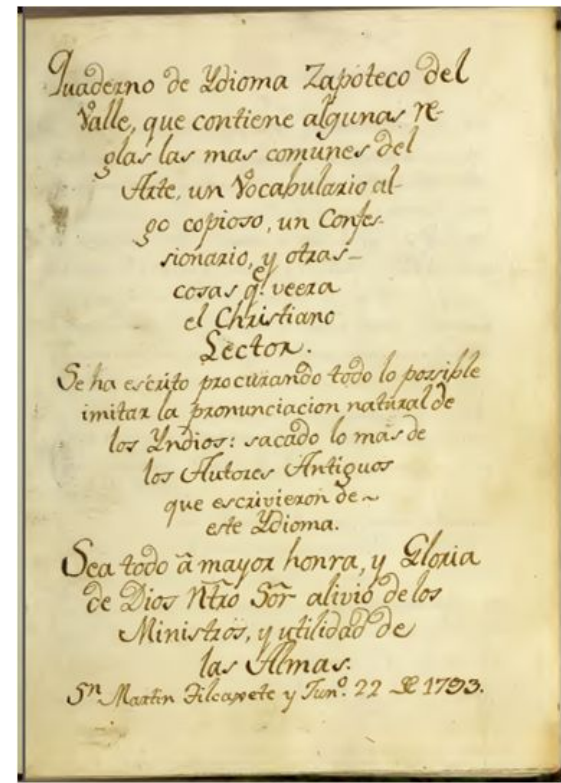 Quaderno de Ydioma Zapoteco del
Valle, que contiene algunas re-
glas las mas comunes del
Arte, un Vocabulario al-
go copioso, un Confes-
sionario, y otras-
cosas q.e veera
el Christiano
Lector.
Se ha escrito procurando todo lo possible
imitar la pronunciacion natural de
los Yndios: sacado lo mas de
los Autores Antiguos
que escrivieron de~
este Ydioma.
Sea todo â mayor honra, y Gloria
de Dios Ntrõ Sõr alivio de los
Ministros, y utilidad de
las Almas.
Sn Martin Tilcaxete y Jun.o 22 de 1793.